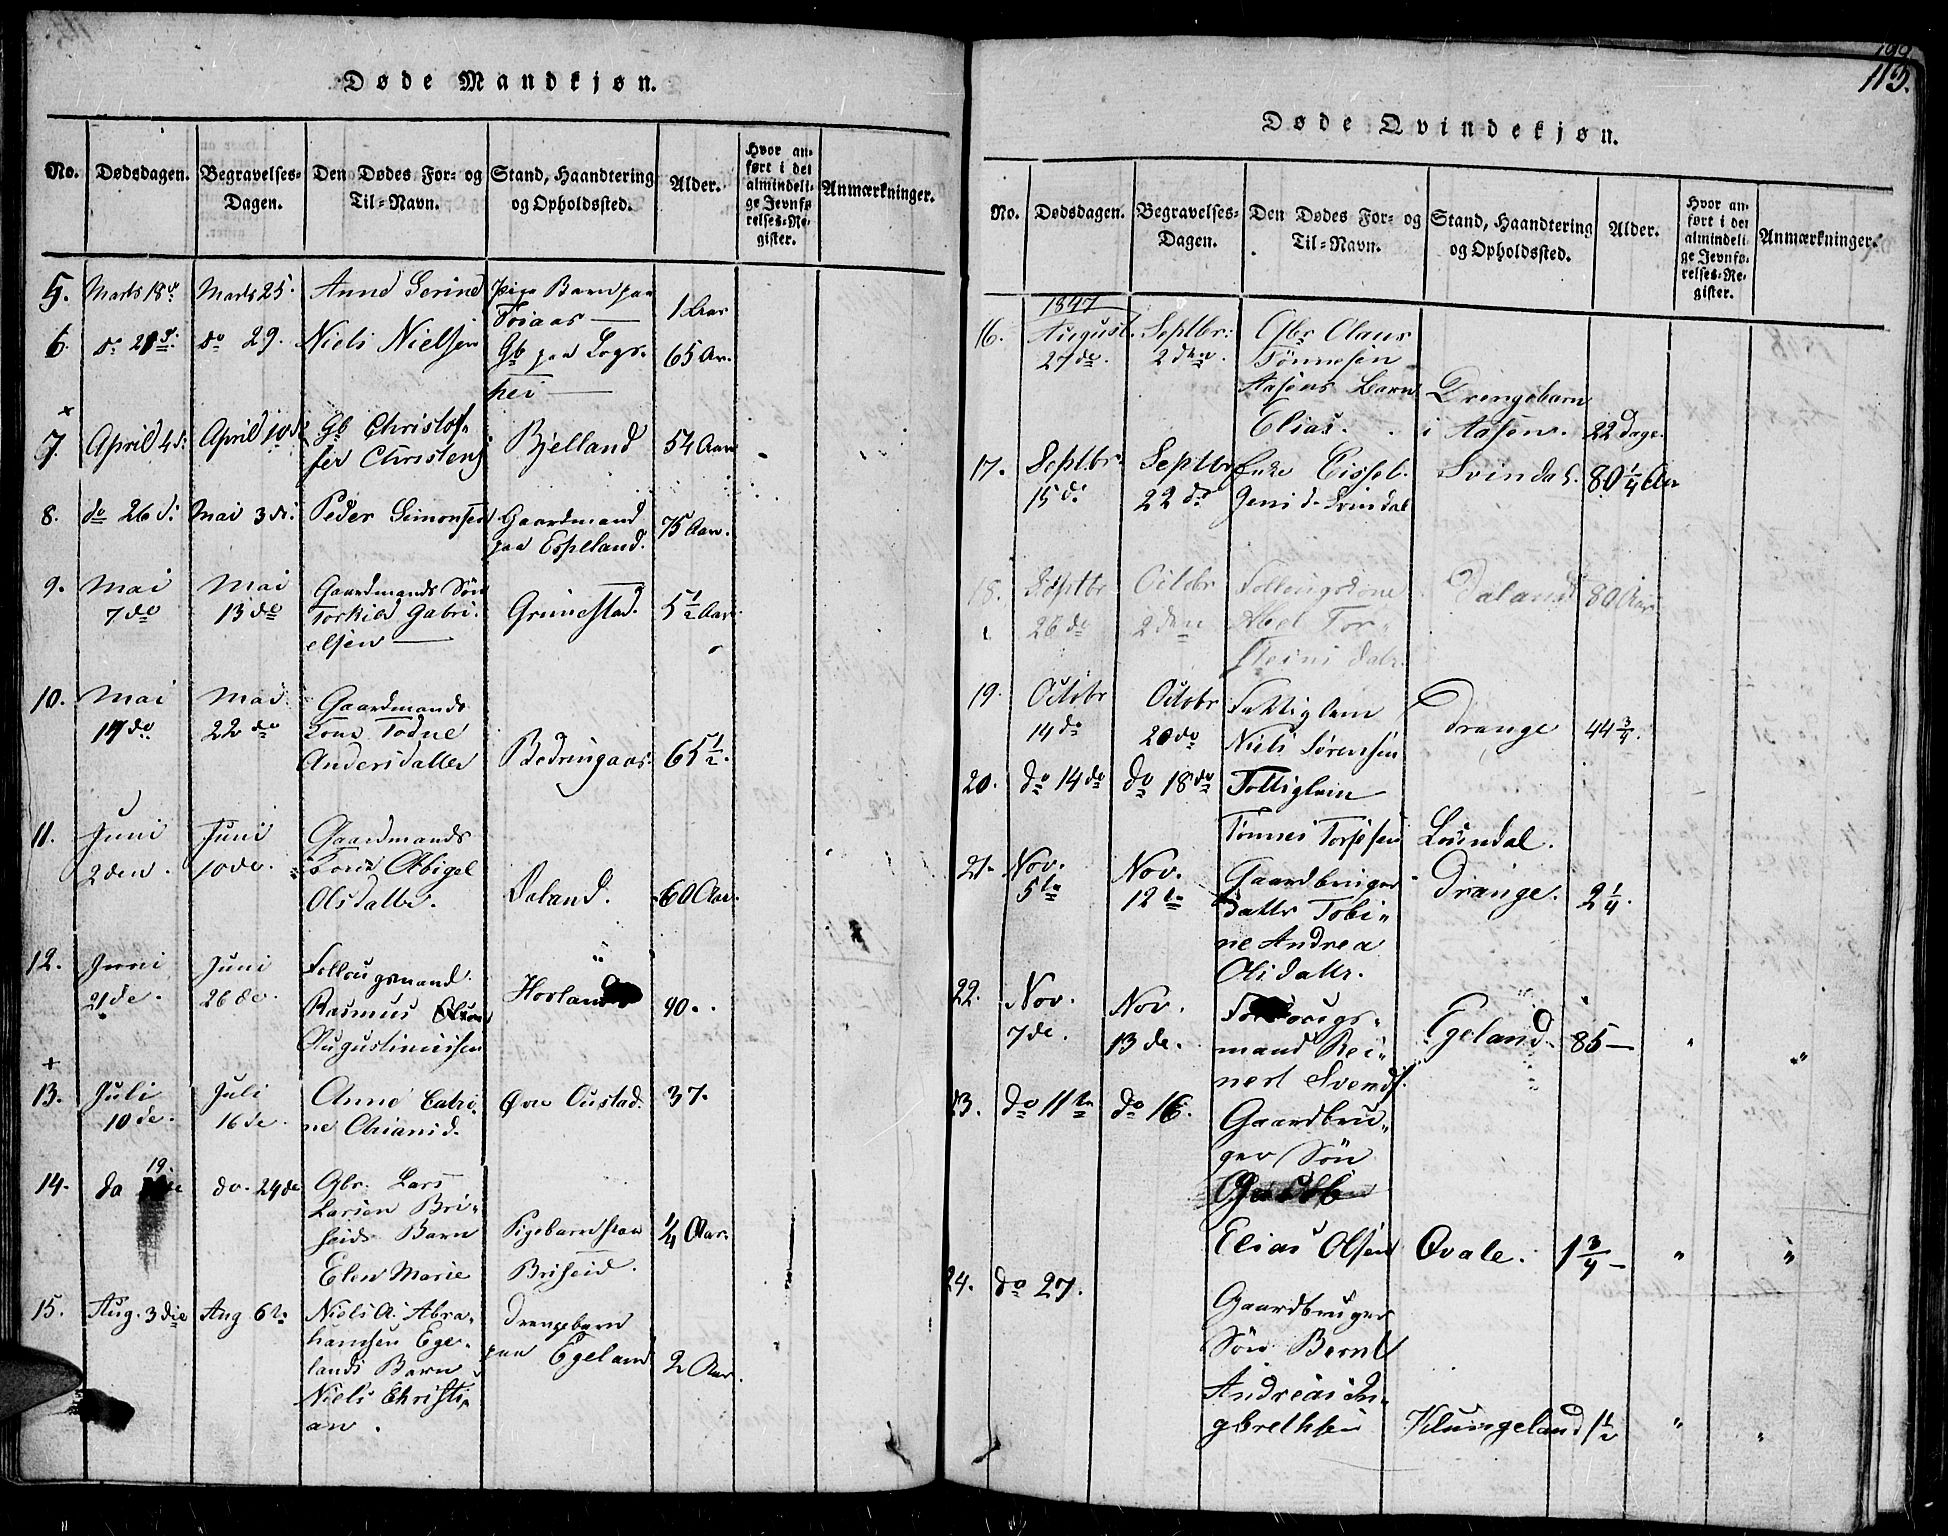 Døde Mandkjøn.
No. Dødsdagen. Begravelses-Dagen. Den Dødes For- og Til-Navn. Stand, Haandtering og Opholdssted. Alder. Hvor anført i det almindelige Jevnførelses-Register. Anmærkninger.
5. Marts 18de Marts 25. Anne Serine Pige Barn paa 1 Aar
6. do 21de do 29. Niels Nielsen Gb paa 65 Aar
hei
7. April 4de April 10de Gb Christof-
fer Christens Bjelland 54 Aar
8. do 26de Mai 3de Peder Simonsen Gaardmand 75 Aar.
paa Espeland.
9. Mai Mai Gaardmands Søn
7de 13de Torkild Gabri- Grimestad. 5 1/2 Aar
elsen
10. Mai Mai Gaardmands
22de Kone Todne
Andersdatter 65 1/2.
11. Juni Juni Gaardmands
2den. 10de. Kone Abigel
Olsdatter. Daland. 60 Aar.
12. Juni Juni Follougsmand
21de. 26de. Rasmus 90.
Augustinussen
13. Juli Juli Anne Catri- Øvre Oustad. 37.
10de. 16de. ne
19.
14. do do. 24de Gbr. Lars
Larsen Bri-
seids Barn Pigebarn paa 1/4 Aar
Elen Marie Briseid.
15. Aug. 3die Aug 6te Niels A. Abra- Drengebarn
hamsen Ege- paa Egeland 2 Aar.
lands Barn
Niels Christi-
an.
113.
Døde Qvindekjøn.
No. Dødsdagen. Begravelses-Dagen. Den Dødes For- og Til-Navn. Stand, Haandtering og Opholdssted. Alder. Hvor anført i det almindelige Jevnførelses-Register. Anmærkninger.
1847
16. August Septbr: Gbr Claus
27de. 2den. Tønnesen
Aasens Barn Drengebarn
Elias. i Aasen. 22 Dage.
17. Septbr. Septbr Enke Sissel Svindal. 80 1/4 Aar
15de 22de Svindal
18. Septbr Octobr Daland 80 Aar
26de 2den Abel Tor-
steinsdatr.
19. Octobr Octobr Fattiglem Drange 44 3/4.
14de 20de Niels Sørensen
20. do 14de do 18de Fattiglem
Tønnes
21. Nov. Nov. Gaardbruger Drange. 2 1/4.
5te 12te datter Tobi-
ne Andrea
Olsdatter.
22. Nov. Nov. Follougs-
7de. 13de. mand Rei- Egeland 85 — " "
nert Svends.
23. do 11te do 16. Gaardbru-
ger Søn
Elias Olsen Qvale. 1 3/4 — " "
24. do 27. Gaardbruger
Søn Bernt
Andreas In-
gbrethsen Klungeland 1 1/2 " "